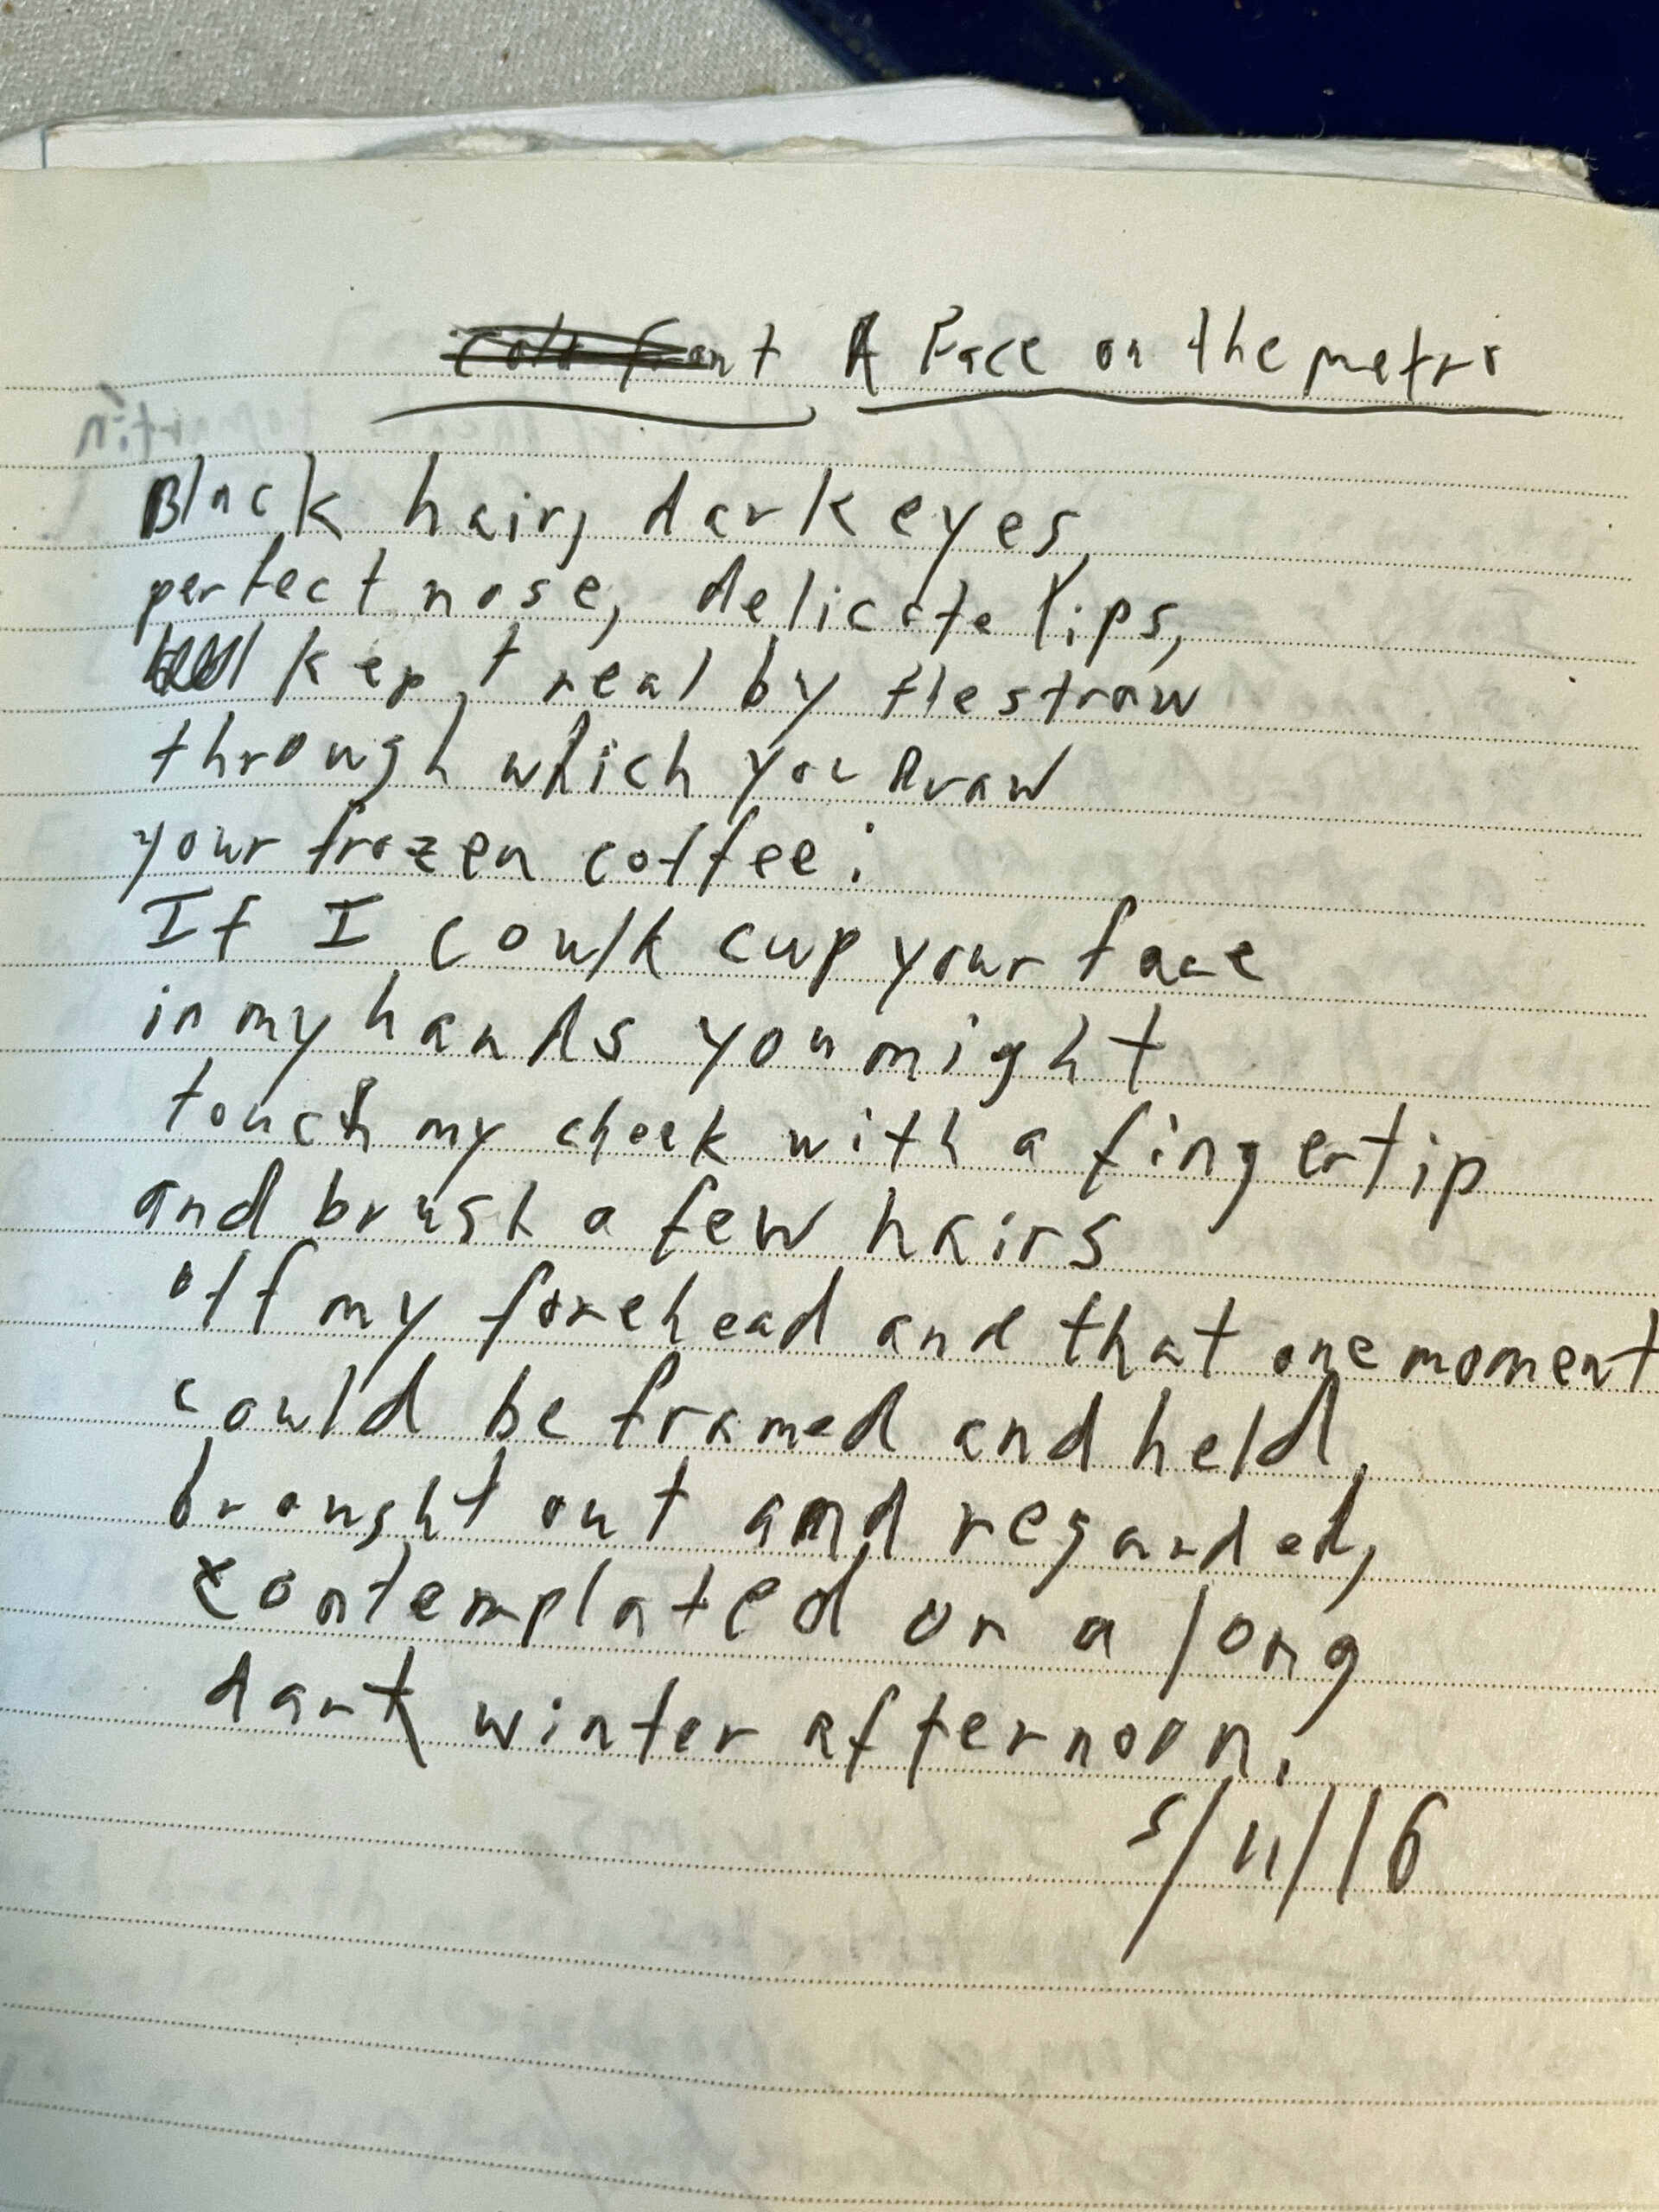 A Face on the metro
Black hair, dark eyes,
perfect nose, delicate lips,
kept real by the straw
through which you draw
your frozen coffee:
If I could cup your face
in my hands you might
touch my cheek with a fingertip
and brush a few hairs
off my forehead and that one moment
could be framed and held,
brought out and regarded,
contemplated on a long
dark winter afternoon.
5/11/16